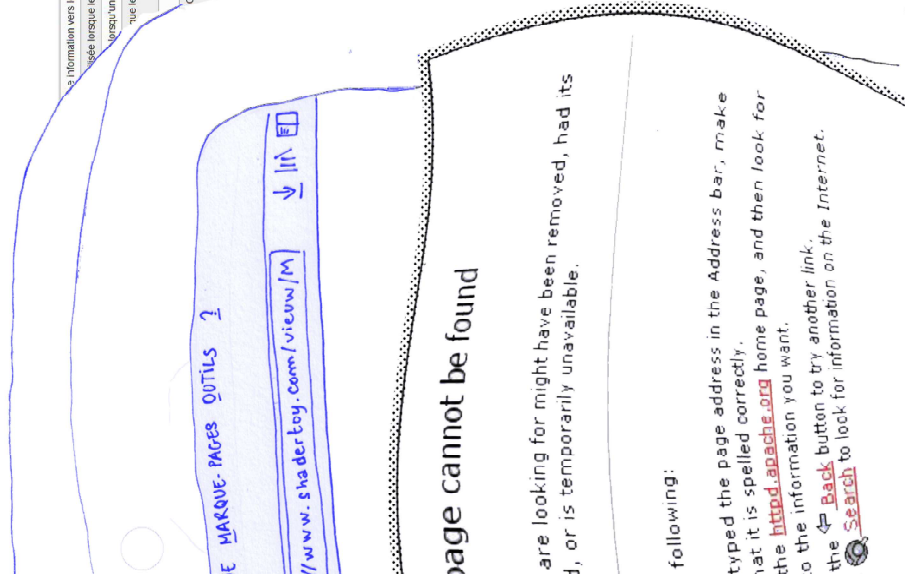 e information vers l
isée lorsque le
lorsqu'un
que le
E MARQUE-PAGES OUTILS ?
//www.shadertoy.com/vieuw/M
page cannot be found
are looking for might have been removed, had its
d, or is temporarily unavailable.
following:
typed the page address in the Address bar, make
hat it is spelled correctly.
the httpd.apache.org home page, and then look for
o the information you want.
the Back button to try another link.
Search to look for information on the Internet.